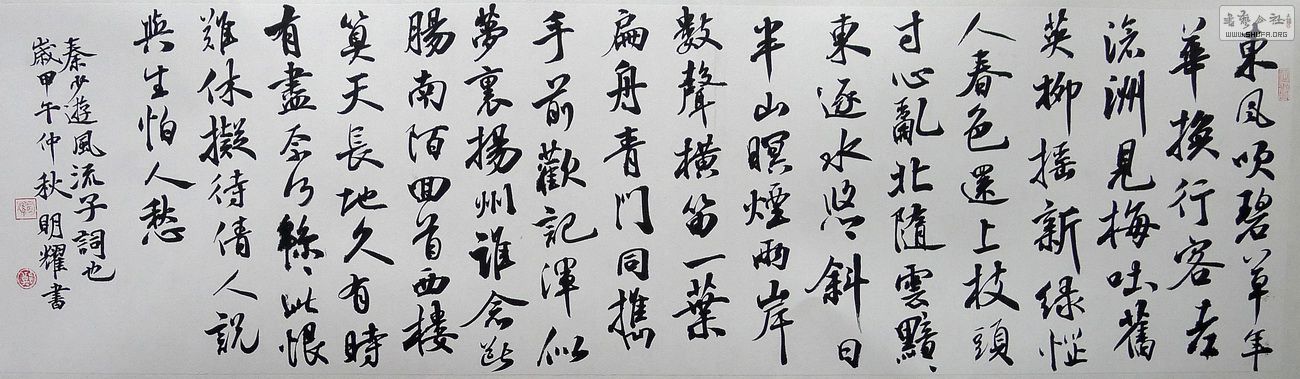 東風吹碧草年
華換行客老
滄洲見梅吐舊
英柳搖新綠惱
人春色還上枝頭
寸心亂北隨雲黯、
東逐水悠、斜日
半山暝煙兩岸
數聲橫笛一葉
扁舟青門同攜
手前歡記渾似
夢裏揚州誰念斷
腸南陌回首西樓
算天長地久有時
有盡奈何綿、此恨
難休擬待倩人説
與生怕人愁
秦少遊風流子詞也
歲甲午仲秋明耀書
WWW.SHUFA.ORG